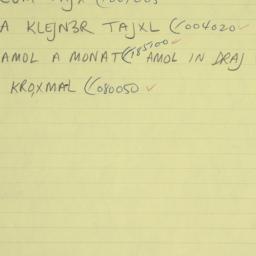 A KLEJN3R TAJXL (/004020
185100
AMOL A MONAT (/ AMOL IN DRAJ
KROXMAL (/080050